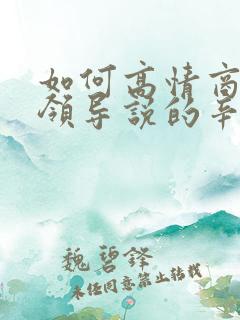 如何高情商
领导说的辛
魏碧锋
未经同意禁止转载